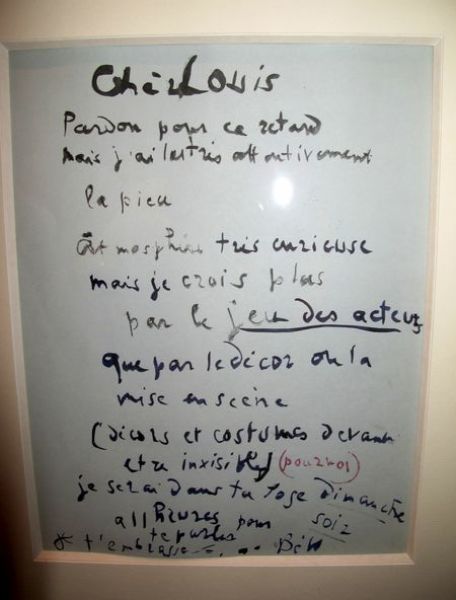 Cher Louis
Pardon pour ce retard
mais j'ai lu très attentivement
la pièce
Atmosphère très curieuse
mais je crois plus
par le jeu des acteurs
que par le décor ou la
mise en scène
(décors et costumes devant
être invisibles) (pourquoi)
je serai dans ta loge dimanche
soir
à 11 heures pour
te parler
t'embrasse